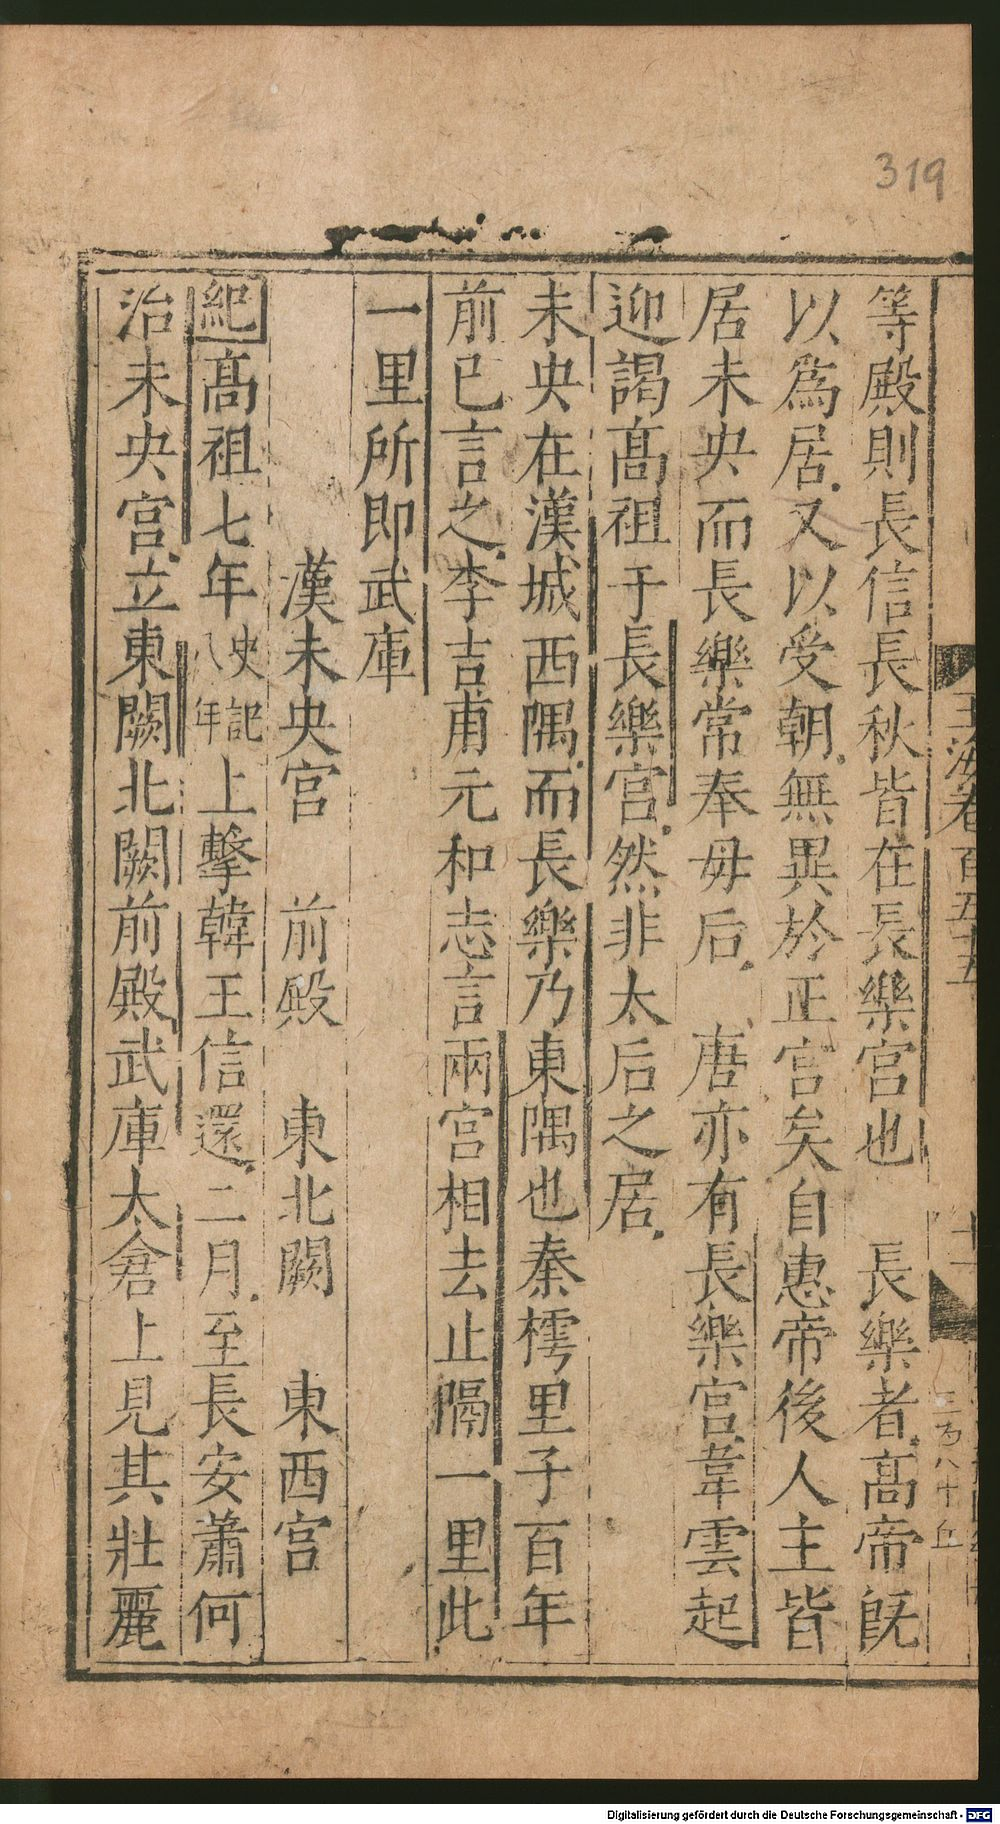 319
玉海卷百五十五
等殿則長信長秋皆在長樂宮也　長樂者高帝旣
以爲居又以受朝無異於正宮矣自惠帝後人主皆
居未央而長樂常奉毋后　唐亦有長樂宮韋雲起
迎謁髙祖于長樂宮然非太后之居
未央在漢城西隅而長樂乃東隅也秦樗里子百年
前已言之李吉甫元和志言兩宮相去止隔一里此
一里所即武庫
漢未央宮　前殿　東北闕　東西宮
紀髙祖七年史記八年上擊韓王信還二月至長安蕭何
治未央宮立東闕北闕前殿武庫大倉上見其壯麗
Digitalisierung gefördert durch die Deutsche Forschungsgemeinschaft - DFG